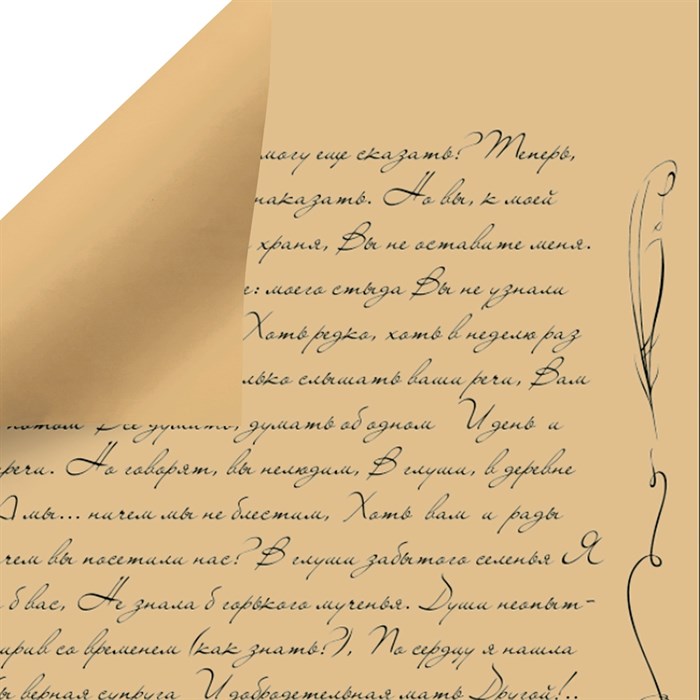 могу еще сказать? Теперь,
наказать. Но вы, к моей
храня, Вы не оставите меня.
е: моего стыда Вы не узнали
Хоть редко, хоть в неделю раз
лько слышать ваши речи, Вам
потом Все думать, думать об одном И день и
речи. Но говорят, вы нелюдим, В глуши, в деревне
А мы... ничем мы не блестим, Хоть вам и рады
чем вы посетили нас? В глуши забытого селенья Я
б вас, Не знала б горького мученья. Души неопыт-
ирив со временем (как знать?), По сердцу я нашла
ы верная супруга И добродетельная мать Другой!..